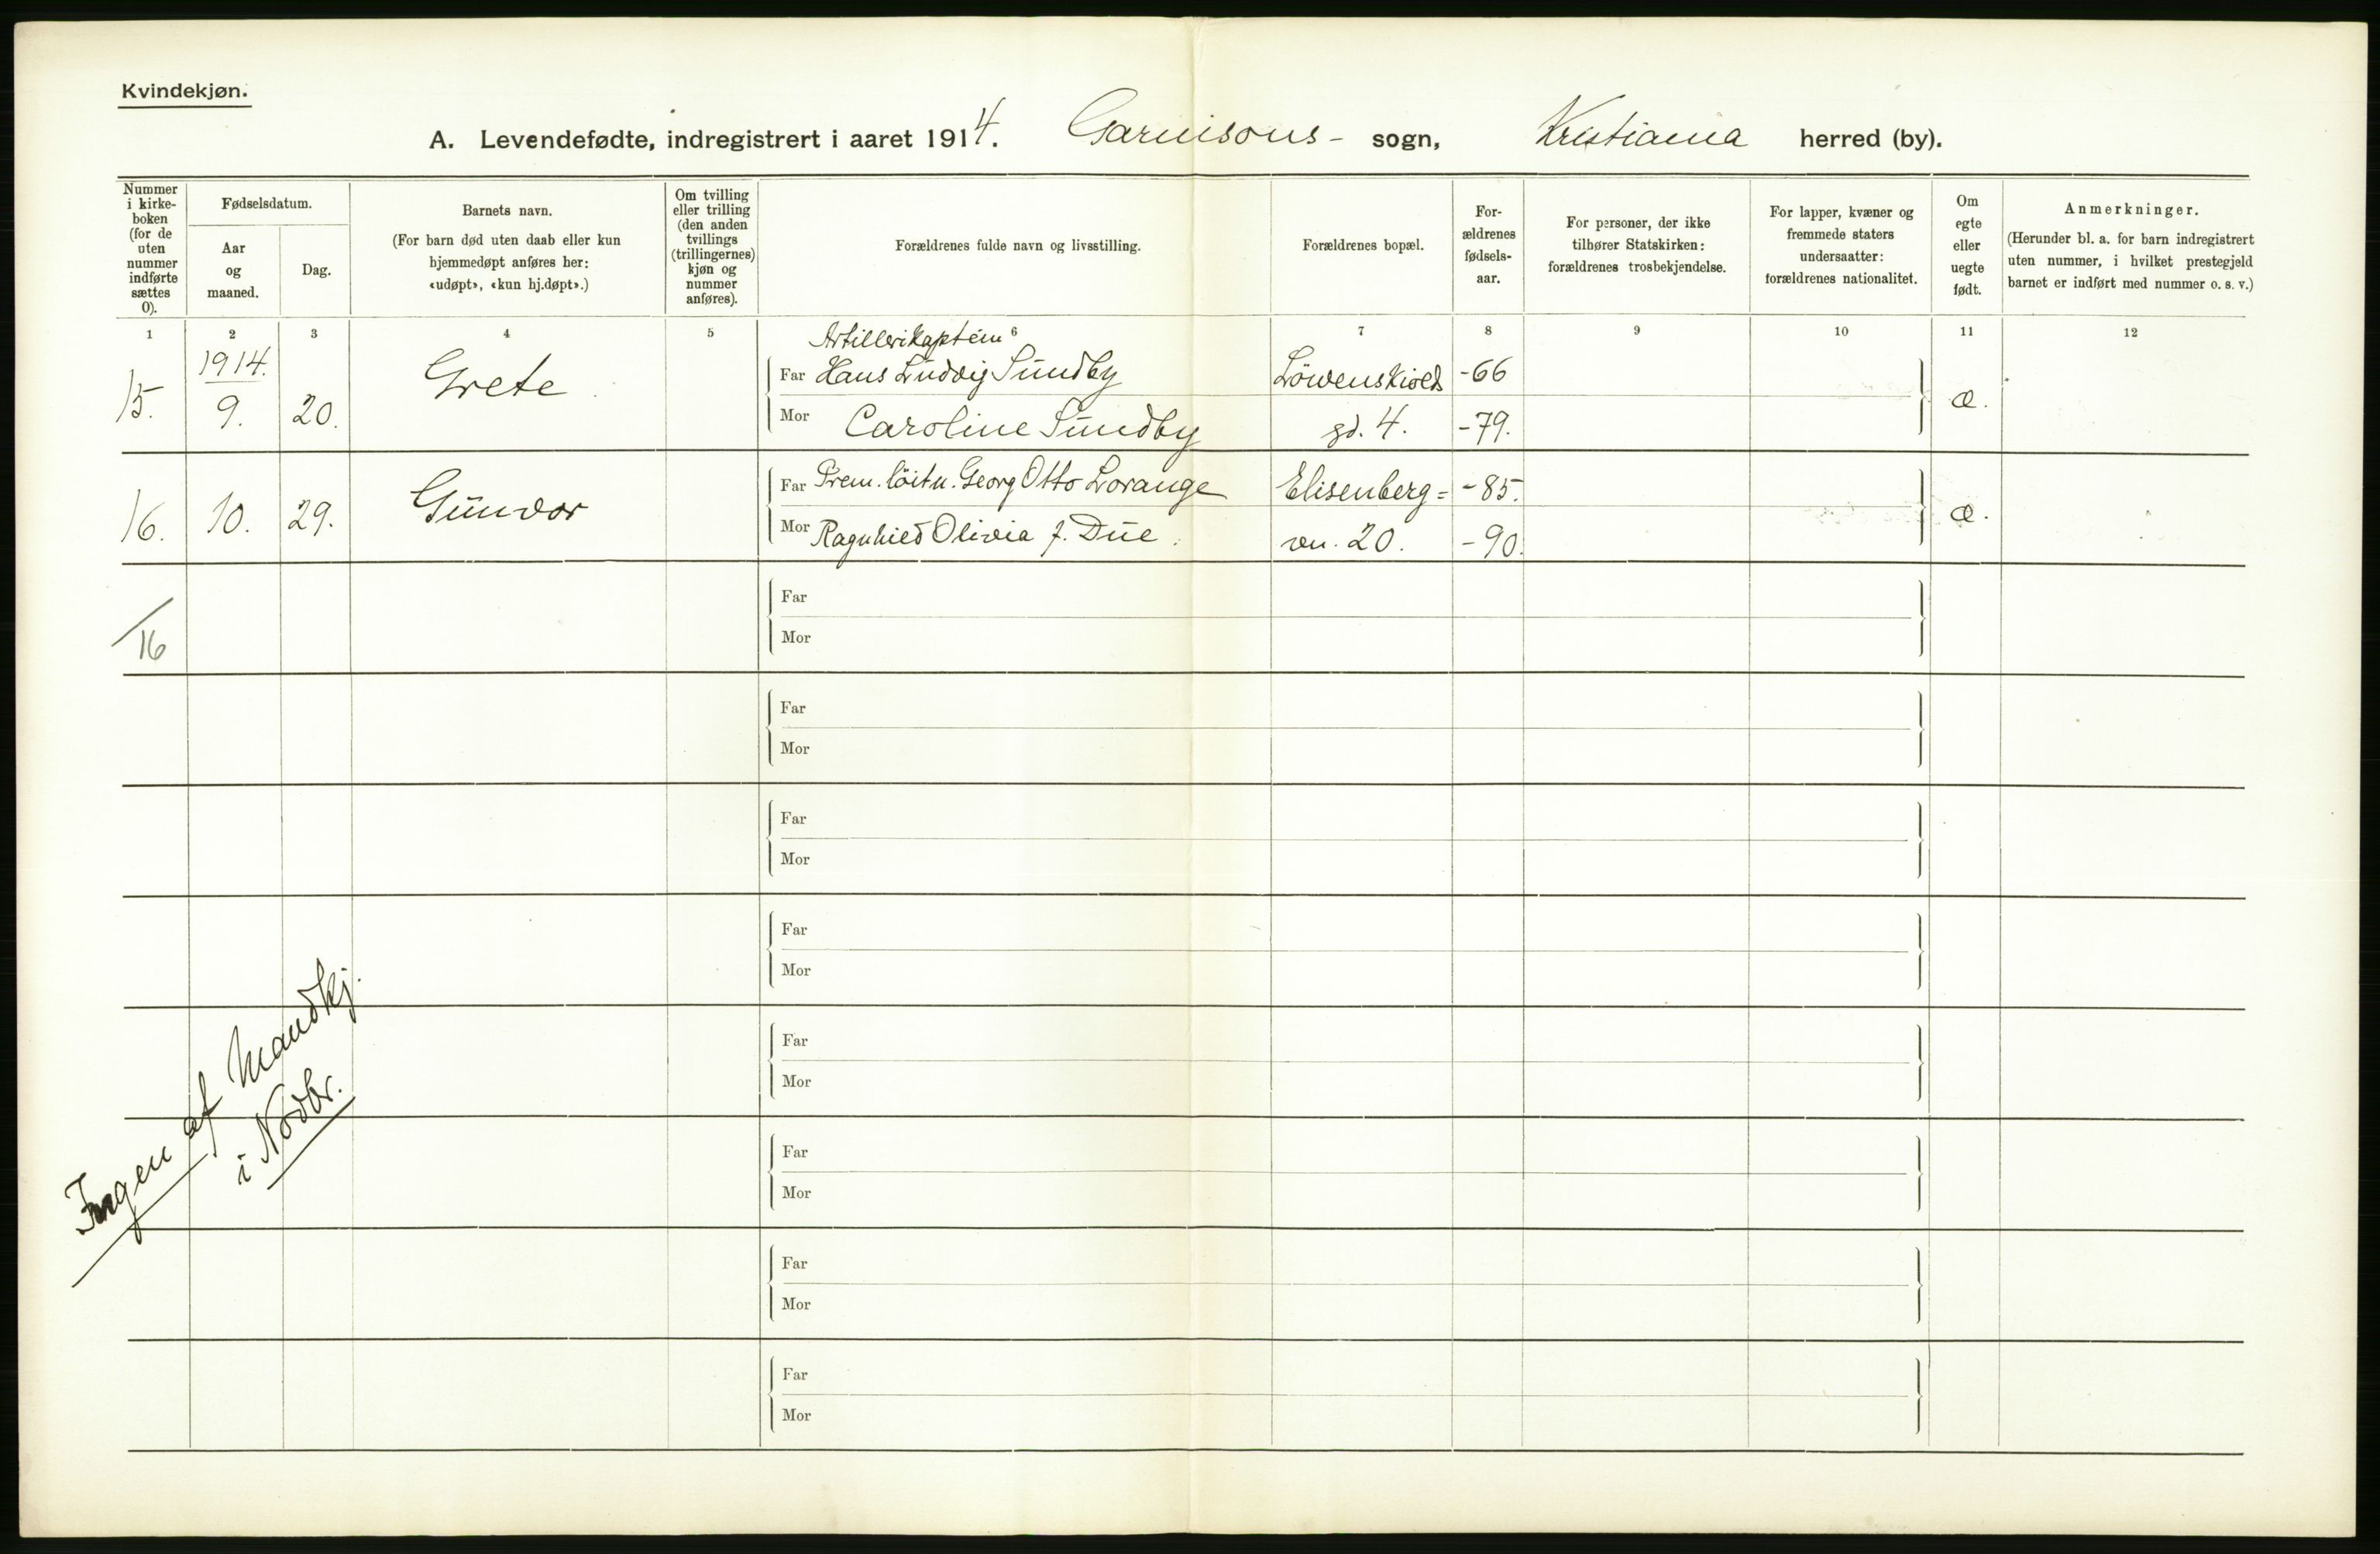 Kvindekjøn.
A. Levendefødte, indregistrert i aaret 1914. Garnisons- sogn, Kristiania herred (by).
Nummer
i kirke-
boken
(for de
uten
nummer
indførte
sættes
0).
Fødselsdatum.
Aar
og
maaned.
Dag.
Barnets navn.
(For barn død uten daab eller kun
hjemmedøpt anføres her:
«udøpt», «kun hj.døpt».)
Om tvilling
eller trilling
(den anden
tvillings
(trillingernes)
kjøn og
nummer
anføres).
Forældrenes fulde navn og livsstilling.
Forældrenes bopæl.
For-
ældrenes
fødsels-
aar.
For personer, der ikke
tilhører Statskirken:
forældrenes trosbekjendelse.
For lapper, kvæner og
fremmede staters
undersaatter:
forældrenes nationalitet.
Om
egte
eller
uegte
født.
Anmerkninger.
(Herunder bl. a. for barn indregistrert
uten nummer, i hvilket prestegjeld
barnet er indført med nummer o. s. v.)
1 2 3 4 5 6 7 8 9 10 11 12
Artillerikaptein
15. 1914. 9. 20. Grete Far Hans Ludvig Sundby Löwenskiolds -66 æ.
Mor Caroline Sundby gd. 4. -79.
16. 10. 29. Gunvor Far Prem. löitn. Georg Otto Lorange Elisenberg= -85. æ.
Mor Ragnhild Olivia f. Due. vn. 20. -90.
16
Far
Mor
Far
Mor
Far
Mor
Far
Mor
Far
Mor
Far
Mor
Far
Mor
Far
Mor
Ingen af Mandkj.
i Novbr.